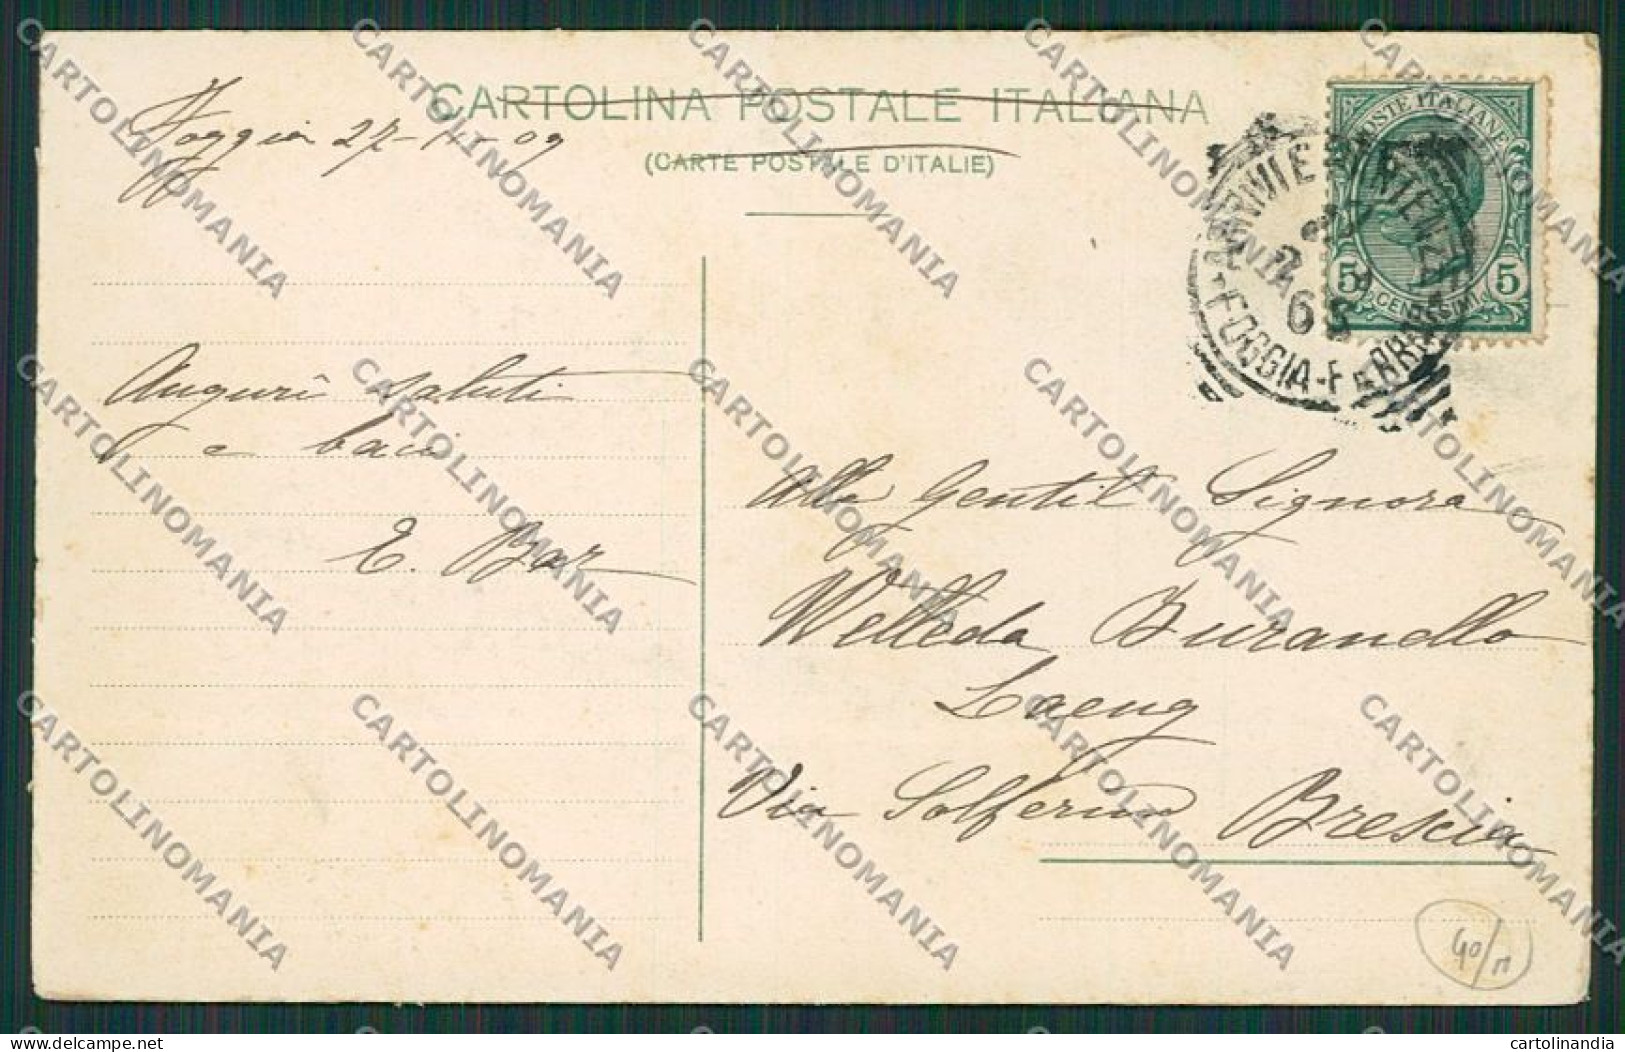 CARTOLINA POSTALE ITALIANA
(CARTE POSTALE D'ITALIE)
Foggia 27- 09
POSTE ITALIANE
5 5
CENTESIMI
ARRIVI E PARTENZA
FOGGIA-FERROVIA
Auguri saluti
e baci
E. Bar
Alla Gentil Signora
Welleda Burandlo
Laeng
Via Solferino Brescia
40/
CARTOLINOMANIA
delcampe.net
cartolinandia